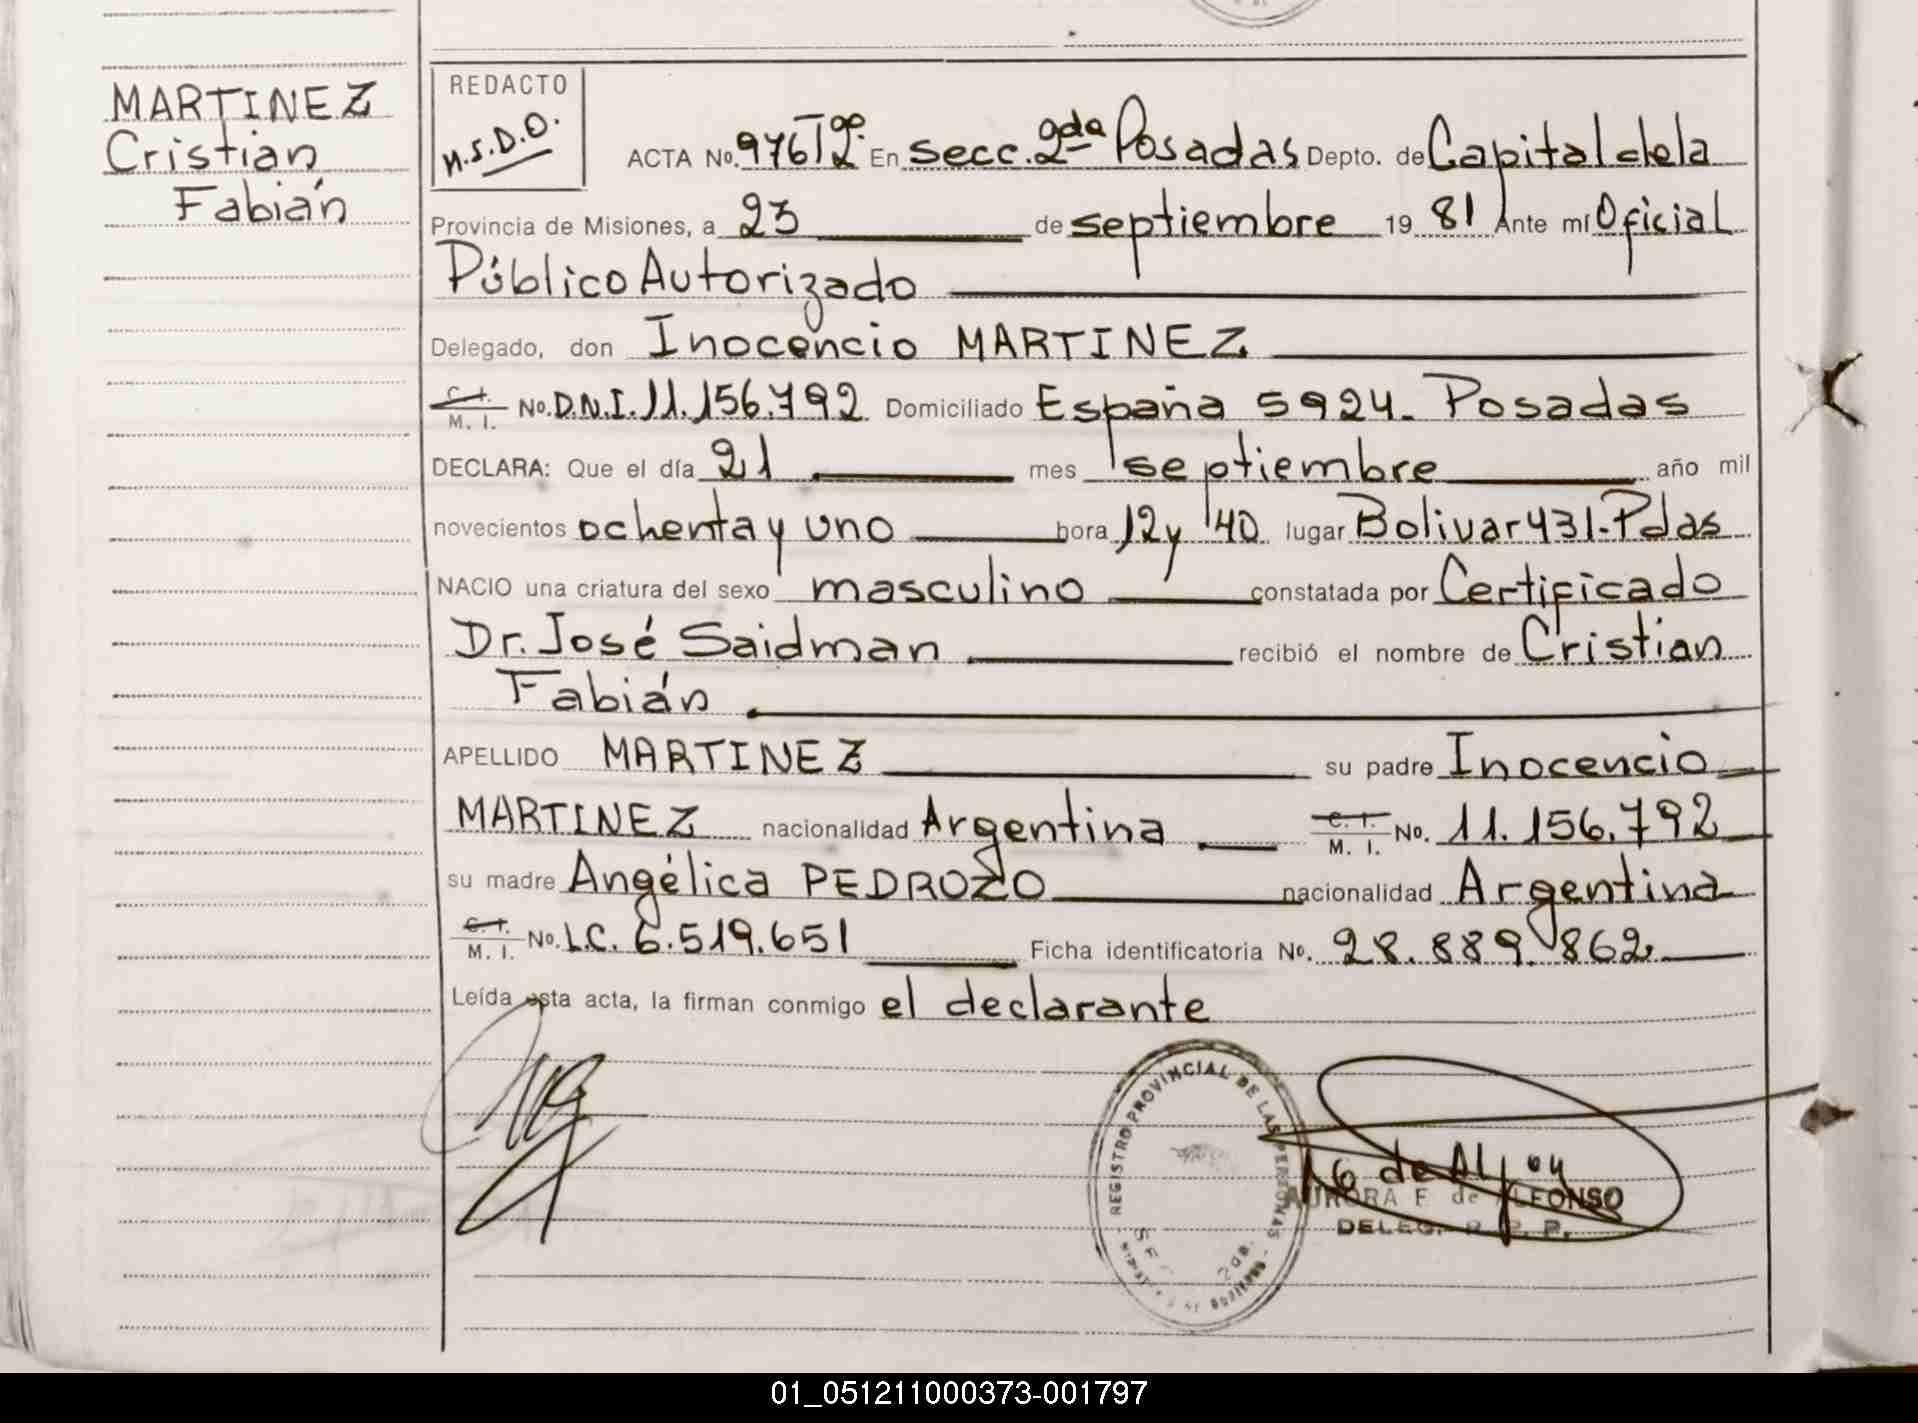 MARTINEZ
Cristian
Fabián
REDACTO
M.S.D.O.
ACTA No. 976 Tº 2º En secc. 2da Posadas Depto. de Capital de la
Provincia de Misiones, a 23 de septiembre 19 81 Ante mí Oficial
Público Autorizado
Delegado, don Inocencio MARTINEZ
C. I. M. I. No. D.N.I. 11.156.792 Domiciliado España 5924. Posadas
DECLARA: Que el día 21 mes septiembre año mil
novecientos ochenta y uno hora 12 y 40 lugar Bolivar 431-Pdas
NACIO una criatura del sexo masculino constatada por Certificado
Dr. José Saidman recibió el nombre de Cristian
Fabián
APELLIDO MARTINEZ su padre Inocencio
MARTINEZ nacionalidad Argentina C. I. M. I. No. 11.156.792
su madre Angélica PEDROZO nacionalidad Argentina
C. I. M. I. No. L.C. 6.519.651 Ficha identificatoria No. 28.889.862
Leída esta acta, la firman conmigo el declarante
REGISTRO PROVINCIAL DE LAS PERSONAS
AURORA F. de ALFONSO
DELEG. R. P. P.
01_051211000373-001797